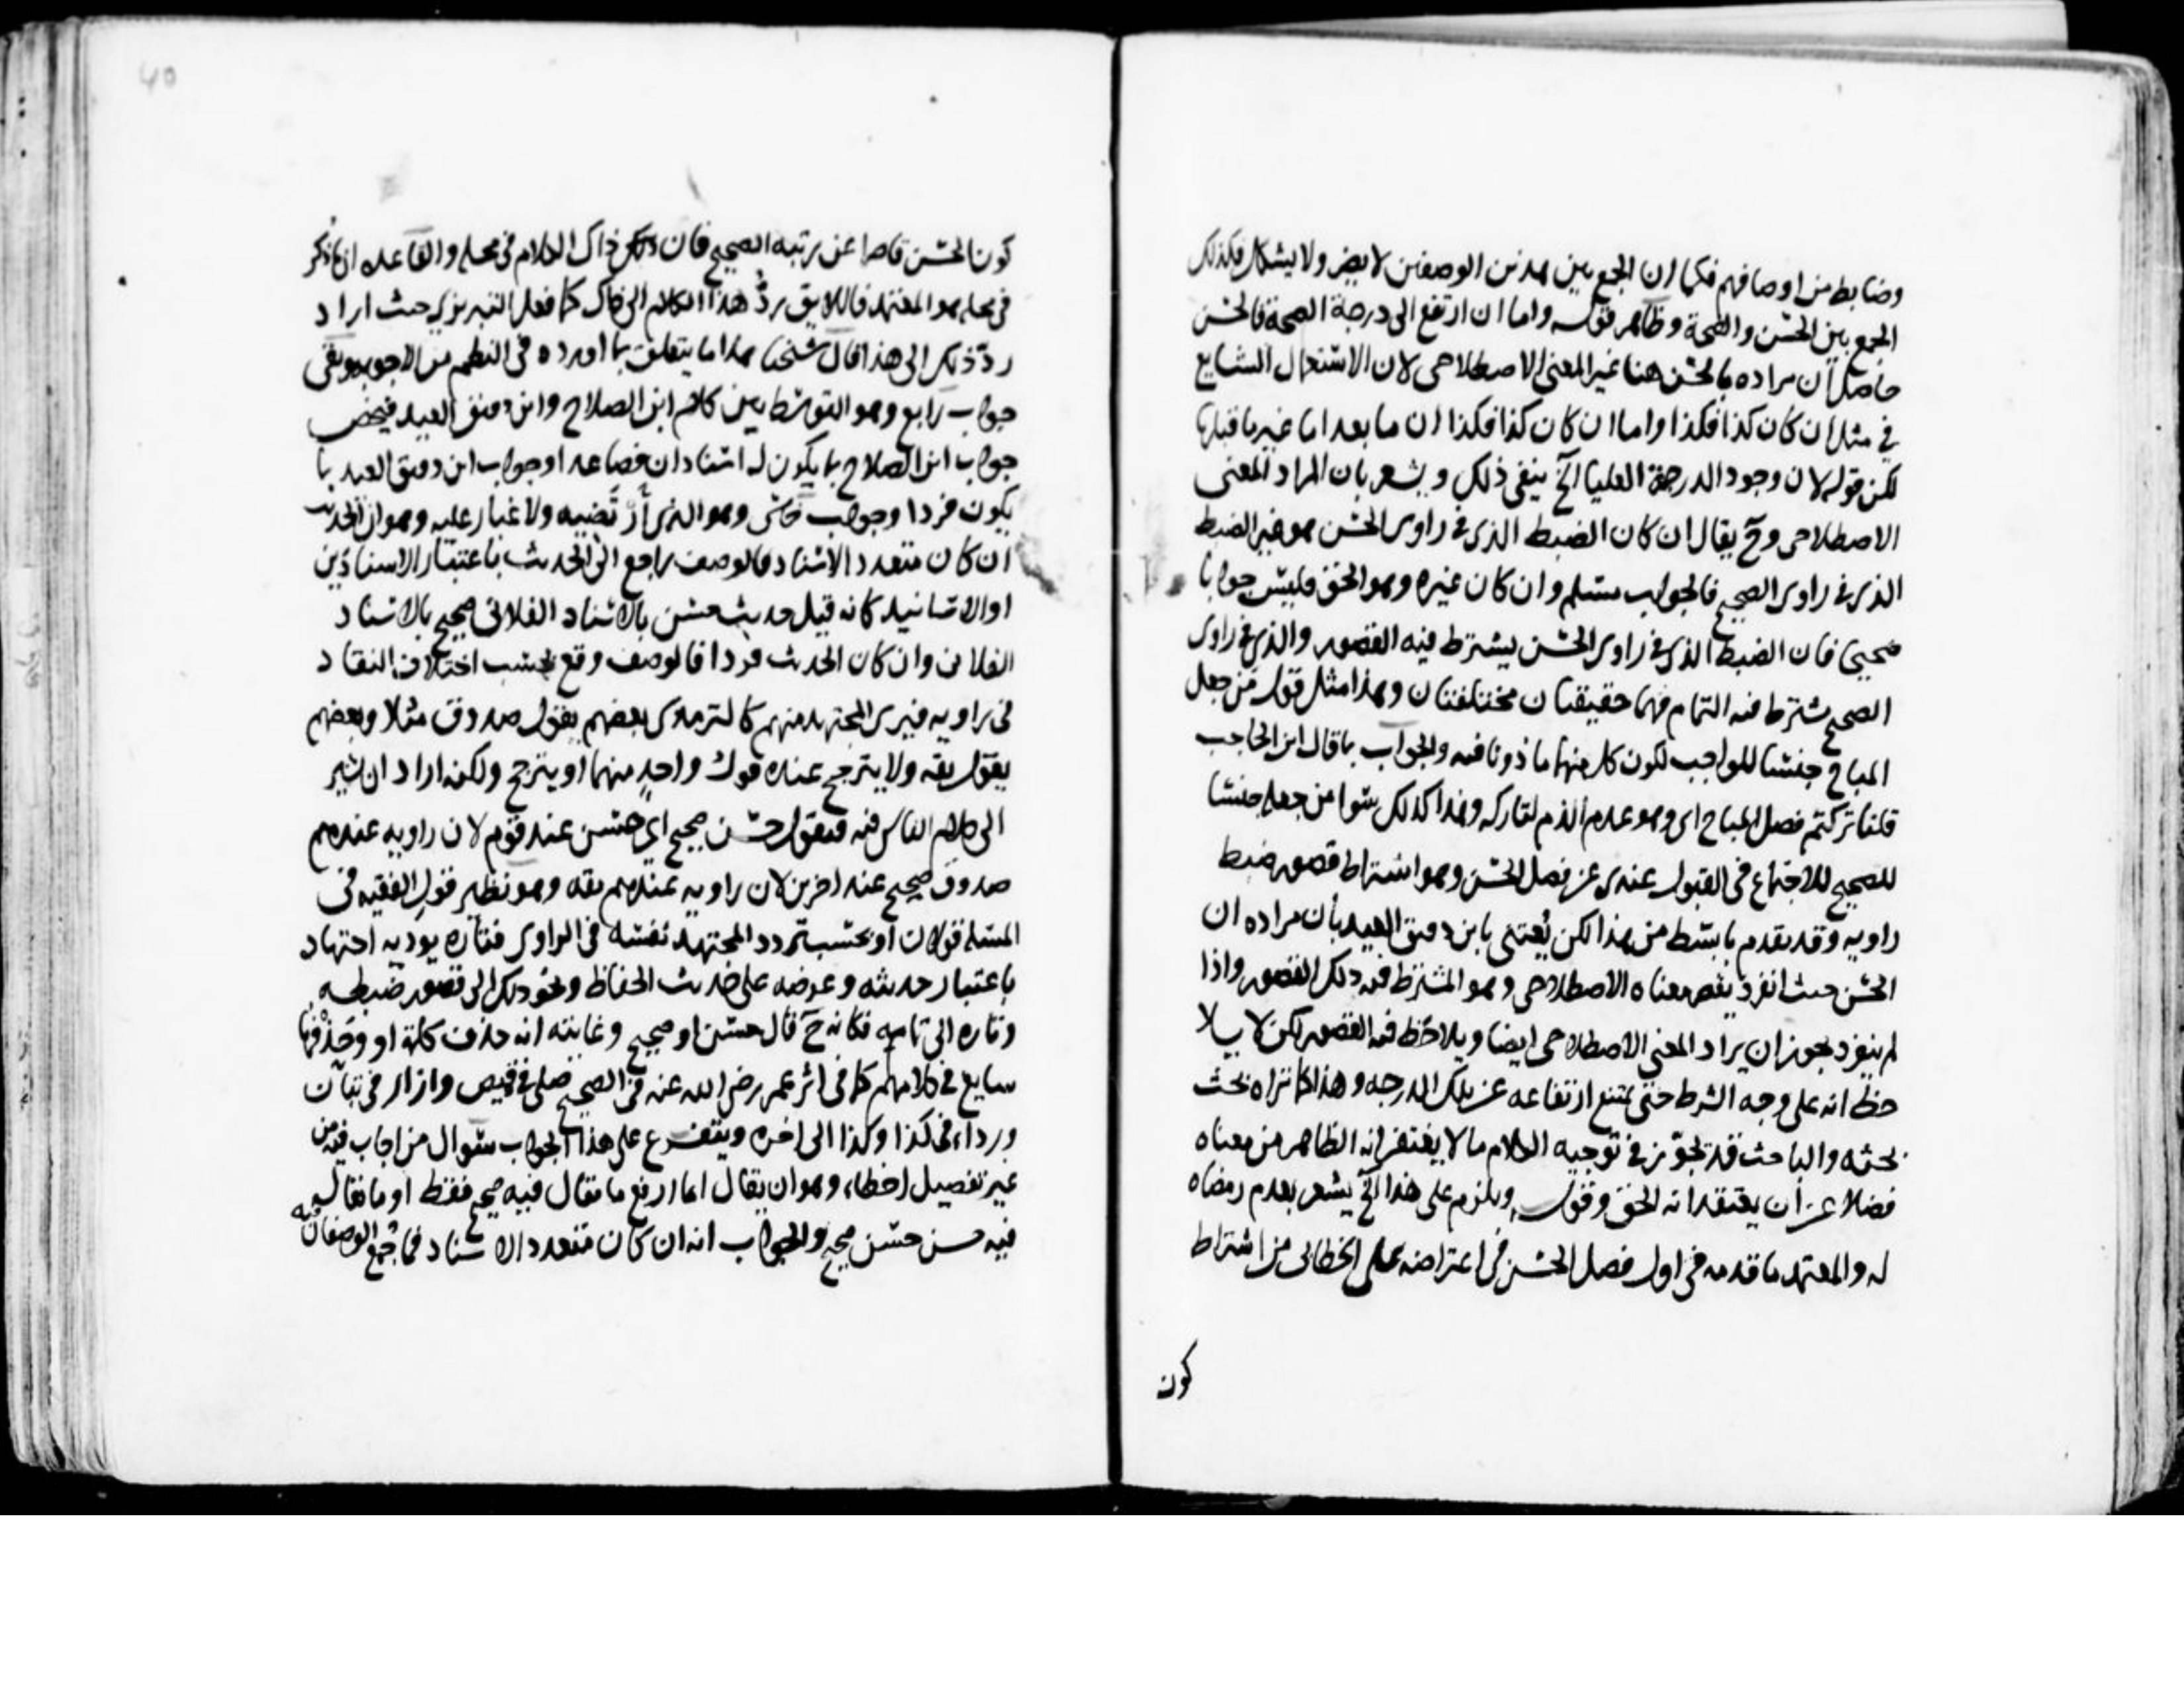 وضابط من اوصافهم فكما ان الجمع بين هذين الوصفين لا يضر ولا يشكل فكذلك
الجمع بين الحسن والصحة وظاهر قوله واما ان ارتفع الى درجة الصحة فالحسن
حاصل ان مراده بالحسن هنا غير المعنى الاصطلاحى لان الاستعمال الشايع
في مثل ان كان كذا فكذا واما ان كان كذا فكذا ان ما بعد اما غير ما قبلها
لكن قوله لان وجود الدرجة العليا الخ ينفى ذلك ويشعر بان المراد المعنى
الاصطلاحى وح يقال ان كان الضبط الذى في راوى الحسن هو غير الضبط
الذى في راوى الصحيح فالجواب مسلم وان كان غيره وهو الحق فليس جوابا
صحيحا فان الضبط الذى في راوى الحسن يشترط فيه القصور والذى في راوى
الصحيح يشترط فيه التمام فهما حقيقتان مختلفتان وهذا مثل قول من جعل
المباح جنسا للواجب لكون كل منهما ماذونا فيه والجواب ما قال ابن الحاجب
قلنا تركتم فصل المباح اى وهو عدم الذم لتاركه وهذا كذلك سوا من جعله جنسا
للصحيح للاجتماع فى القبول عندى عن فصل الحسن وهو اشتراط قصور ضبط
راويه وقد تقدم ما بسط من هذا لكن يعتنى بابن دقيق العيد بان مراده ان
الحسن حيث انفرد يقصر معناه الاصطلاحى وهو المشترط فيه ذلك القصور واذا
لم ينفرد يجوز ان يراد المعنى الاصطلاحى ايضا ويلاحظ فيه القصور لكن لا يلا
حظ انه على وجه الشرط حتى يمتنع ارتفاعه عن تلك الدرجه وهذا كما تراه بحث
بحثه والباحث قد تجوز في توجيه الكلام ما لا يغتفر انه الظاهر من معناه
فضلا عن ان يعتقد انه الحق وقوله ويلزم على هذا الخ يشعر بعدم رضاه
له والمعتمد ما قدمه فى اول فصل الحسن فى اعتراضه على الخطابى من اشتراط
كون
كون الحسن قاصرا عن رتبة الصحيح فان ذلك ذاك الكلام فى محله والقاعده ان ما ذكر
فى محله هو المعتمد فاللايق رد هذا الكلام الى ذاك كما فعل التبريزى حيث اراد
رد ذلك الى هذا قال شيخنا هذا ما يتعلق بما اورده فى النظم من الاجوبه وبقى
جواب رابع وهو التوسط بين كلام ابن الصلاح وابن دقيق العيد فيخص
جواب ابن الصلاح بما يكون له اسنادان فصاعدا وجواب ابن دقيق العيد بما
يكون فردا وجواب خامس وهو الذى ارتضيه ولا غبار عليه وهو ان الحديث
ان كان متعدد الاسناد فالوصف راجع الى الحديث باعتبار الاسنادين
او الاسانيد كانه قيل حديث حسن بالاسناد الفلانى صحيح بالاسناد
الفلانى وان كان الحديث فردا فالوصف وقع بحسب اختلاف النقاد
فى راويه فيرى المجتهد منهم كالترمذى بعضهم يقول صدوق مثلا وبعضهم
يقول ثقه ولا يترجح عنده قول واحد منهما او يترجح ولكنه اراد ان يشير
الى كلام الناس فيه فيقول حسن صحيح اى حسن عند قوم لان راويه عندهم
صدوق صحيح عند اخرين لان راويه عندهم ثقه وهو نظير قول الفقيه فى
المسئله قولان او بحسب تردد المجتهد نفسه فى الراوى فتاره يوديه اجتهاده
باعتبار حديثه وعرضه على حديث الحفاظ ونحو ذلك الى قصور ضبطه
وتاره الى تمامه فكانه ح قال حسن او صحيح وغايته انه حذف كلمة او وحذفها
سايع في كلامهم كما فى اثر عمر رضى الله عنه فى الصحيح صلى في قميص وازار فى تبان
ورداء فى كذا وكذا الى اخره ويتفرع على هذا الجواب سوال من اجاب فيه من
غير تفصيل اخطاء وهو ان يقال ايما ارفع ما يقال فيه صحيح فقط او ما يقال
فيه حسن صحيح والجواب انه ان كان متعدد الاسناد فما جمع الوصفان فيه